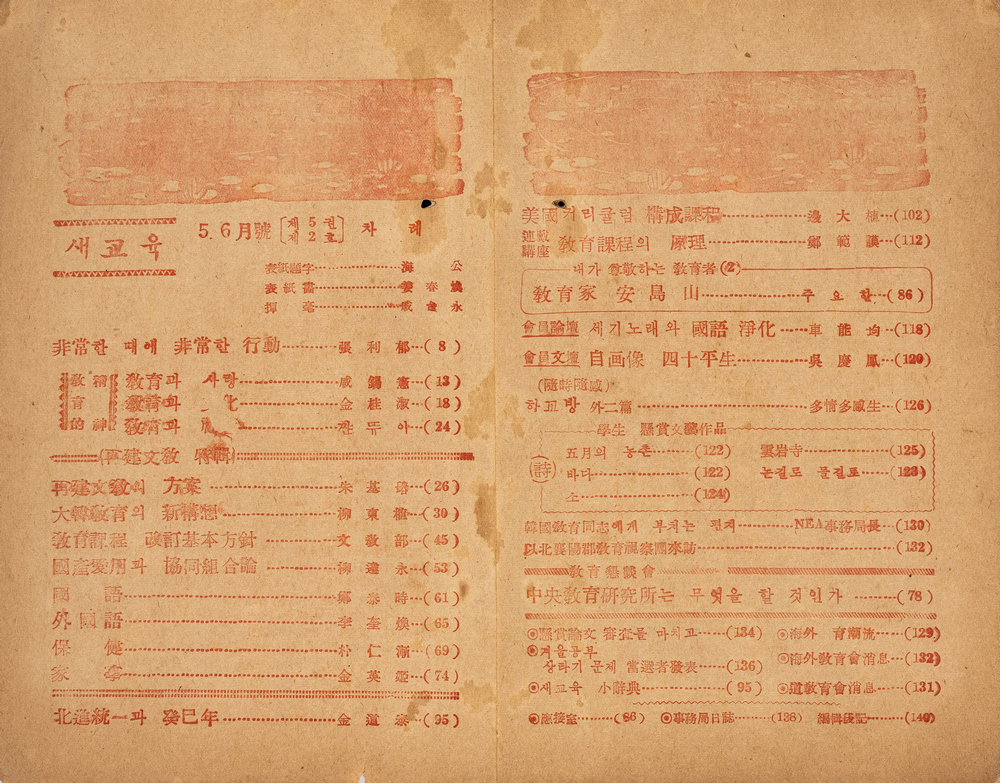 새교육
5. 6月號 [제5권 제2호] 차례
表紙題字……海 公
表紙畵……姜 春 煥
揮 毫……咸 會 永
非常한 때에 非常한 行動……張 利 郁…( 8 )
教育的 精神
敎育과 사랑……咸 錫 憲…(13)
敎育과 化……金 桂 淑…(18)
敎育과……(24)
(再建文敎 特輯)
再建文敎의 方案……朱 基 瑢…(26)
大韓敎育의 新構想……柳 東 植…(30)
敎育課程 改訂基本方針……文 敎 部…(45)
國産愛用과 協同組合論……柳 達 永…(53)
國 語……鄭 泰 時…(61)
外國語……李 奎 煥…(65)
保 健……朴 仁…(69)
家 事……金 英 姬…(74)
北進統一과 癸巳年……金 道 泰…(95)
美國커리큘럼 構成課程……邊 大 植…(102)
連載講座 敎育課程의 原理……鄭 範 謨…(112)
내가 尊敬하는 敎育者(2)
敎育家 安 島 山……주 요 한…( 86 )
會員論壇 세기노래와 國語 淨化……車 能 均…(118)
會員文壇 自画像 四十平生……吳 慶 鳳…(120)
(隨時隨感)
하꼬방 外二篇……多情多感生…(126)
學生 懸賞文藝作品
(詩)
五月의 농촌……(122) 雲岩寺……(125)
바다……(122) 논길로 물길로……(123)
소……(124)
韓國敎育同志에게 부치는 편지……NEA事務局長…(130)
以北襄陽郡敎育視察團來訪……(132)
敎育懇談會
中央敎育研究所는 무엇을 할 것인가……( 78 )
◉懸賞論文 審査를 마치고……(134) ◉海外 育潮流……(129)
◉겨울공부
삼라기 문제 當選者發表……(136) ◉海外敎育會消息…(132)
◉새교육 小辭典……( 95 ) ◉道敎育會消息……(131)
◉應接室……( 86 ) ◉事務局日誌……(138) 編輯後記……(140)